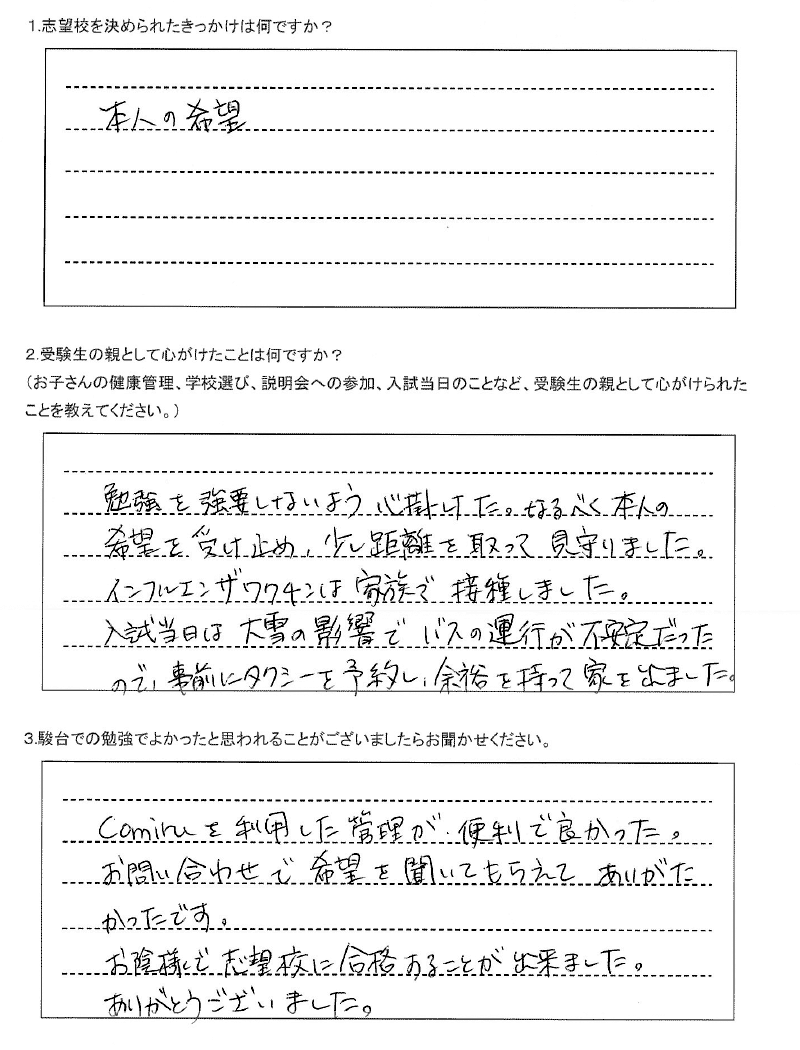 1.志望校を決められたきっかけは何ですか？
本人の希望
2.受験生の親として心がけたことは何ですか？
（お子さんの健康管理、学校選び、説明会への参加、入試当日のことなど、受験生の親として心がけられた
ことを教えてください。）
勉強を強要しないよう心掛けた。なるべく本人の
希望を受け止め、少し距離を取って見守りました。
インフルエンザワクチンは家族で接種しました。
入試当日は大雪の影響でバスの運行が不安定だった
ので、事前にタクシーを予約し、余裕を持って家を出ました。
3.駿台での勉強でよかったと思われることがございましたらお聞かせください。
Comiruを利用した管理が、便利で良かった。
お問い合わせで希望を聞いてもらえてありがた
かったです。
お陰様で志望校に合格あることが出来ました。
ありがとうございました。